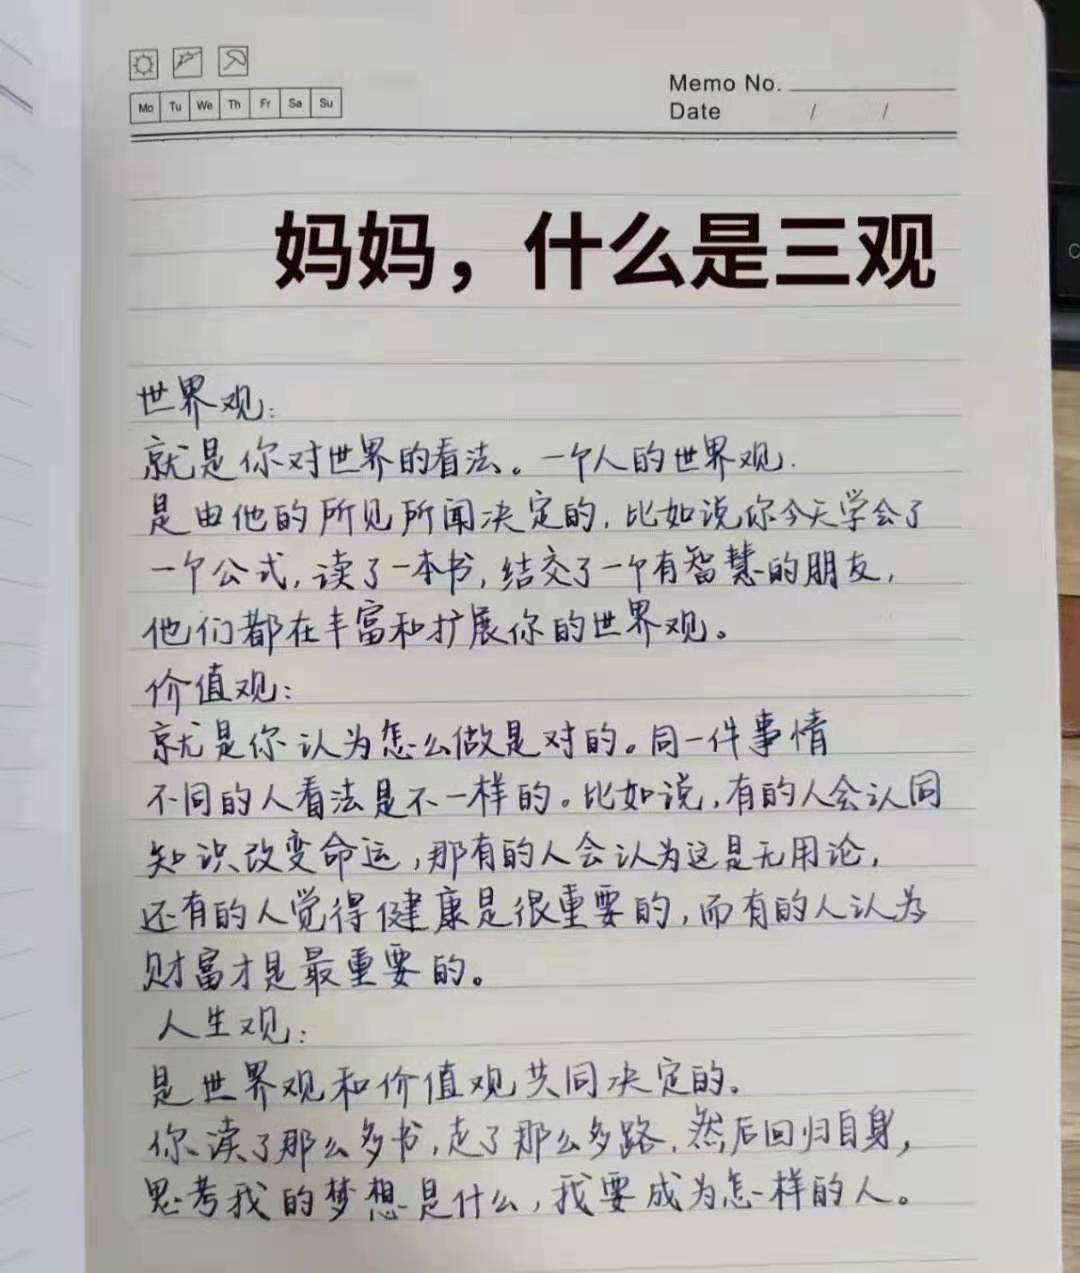 Mo Tu We Th Fr Sa Su
Memo No.
Date / /
妈妈，什么是三观
世界观：
就是你对世界的看法。一个人的世界观.
是由他的所见所闻决定的，比如说你今天学会了
一个公式，读了一本书，结交了一个有智慧的朋友，
他们都在丰富和扩展你的世界观。
价值观：
就是你认为怎么做是对的。同一件事情
不同的人看法是不一样的。比如说，有的人会认同
知识改变命运，那有的人会认为这是无用论，
还有的人觉得健康是很重要的，而有的人认为
财富才是最重要的。
人生观：
是世界观和价值观共同决定的。
你读了那么多书，走了那么多路，然后回归自身，
思考我的梦想是什么，我要成为怎样的人。